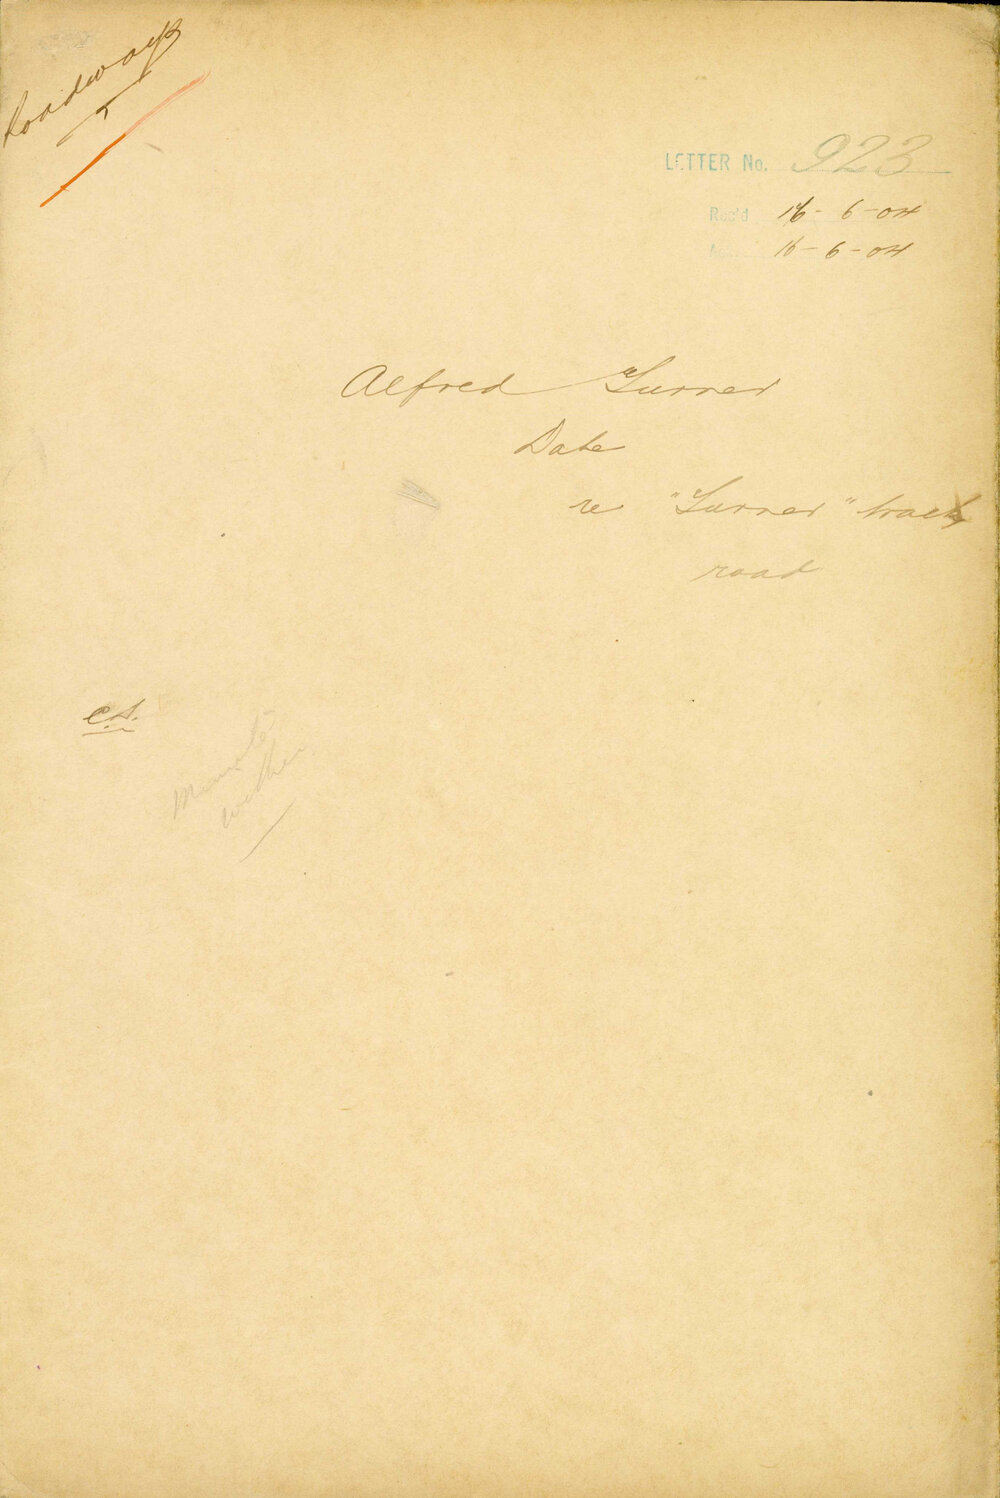 Roadways
LETTER No. 923
Rec'd 16-6-04
16-6-04
Alfred Turner
Date
re "Turner" track
road
C.S.
Minute
within